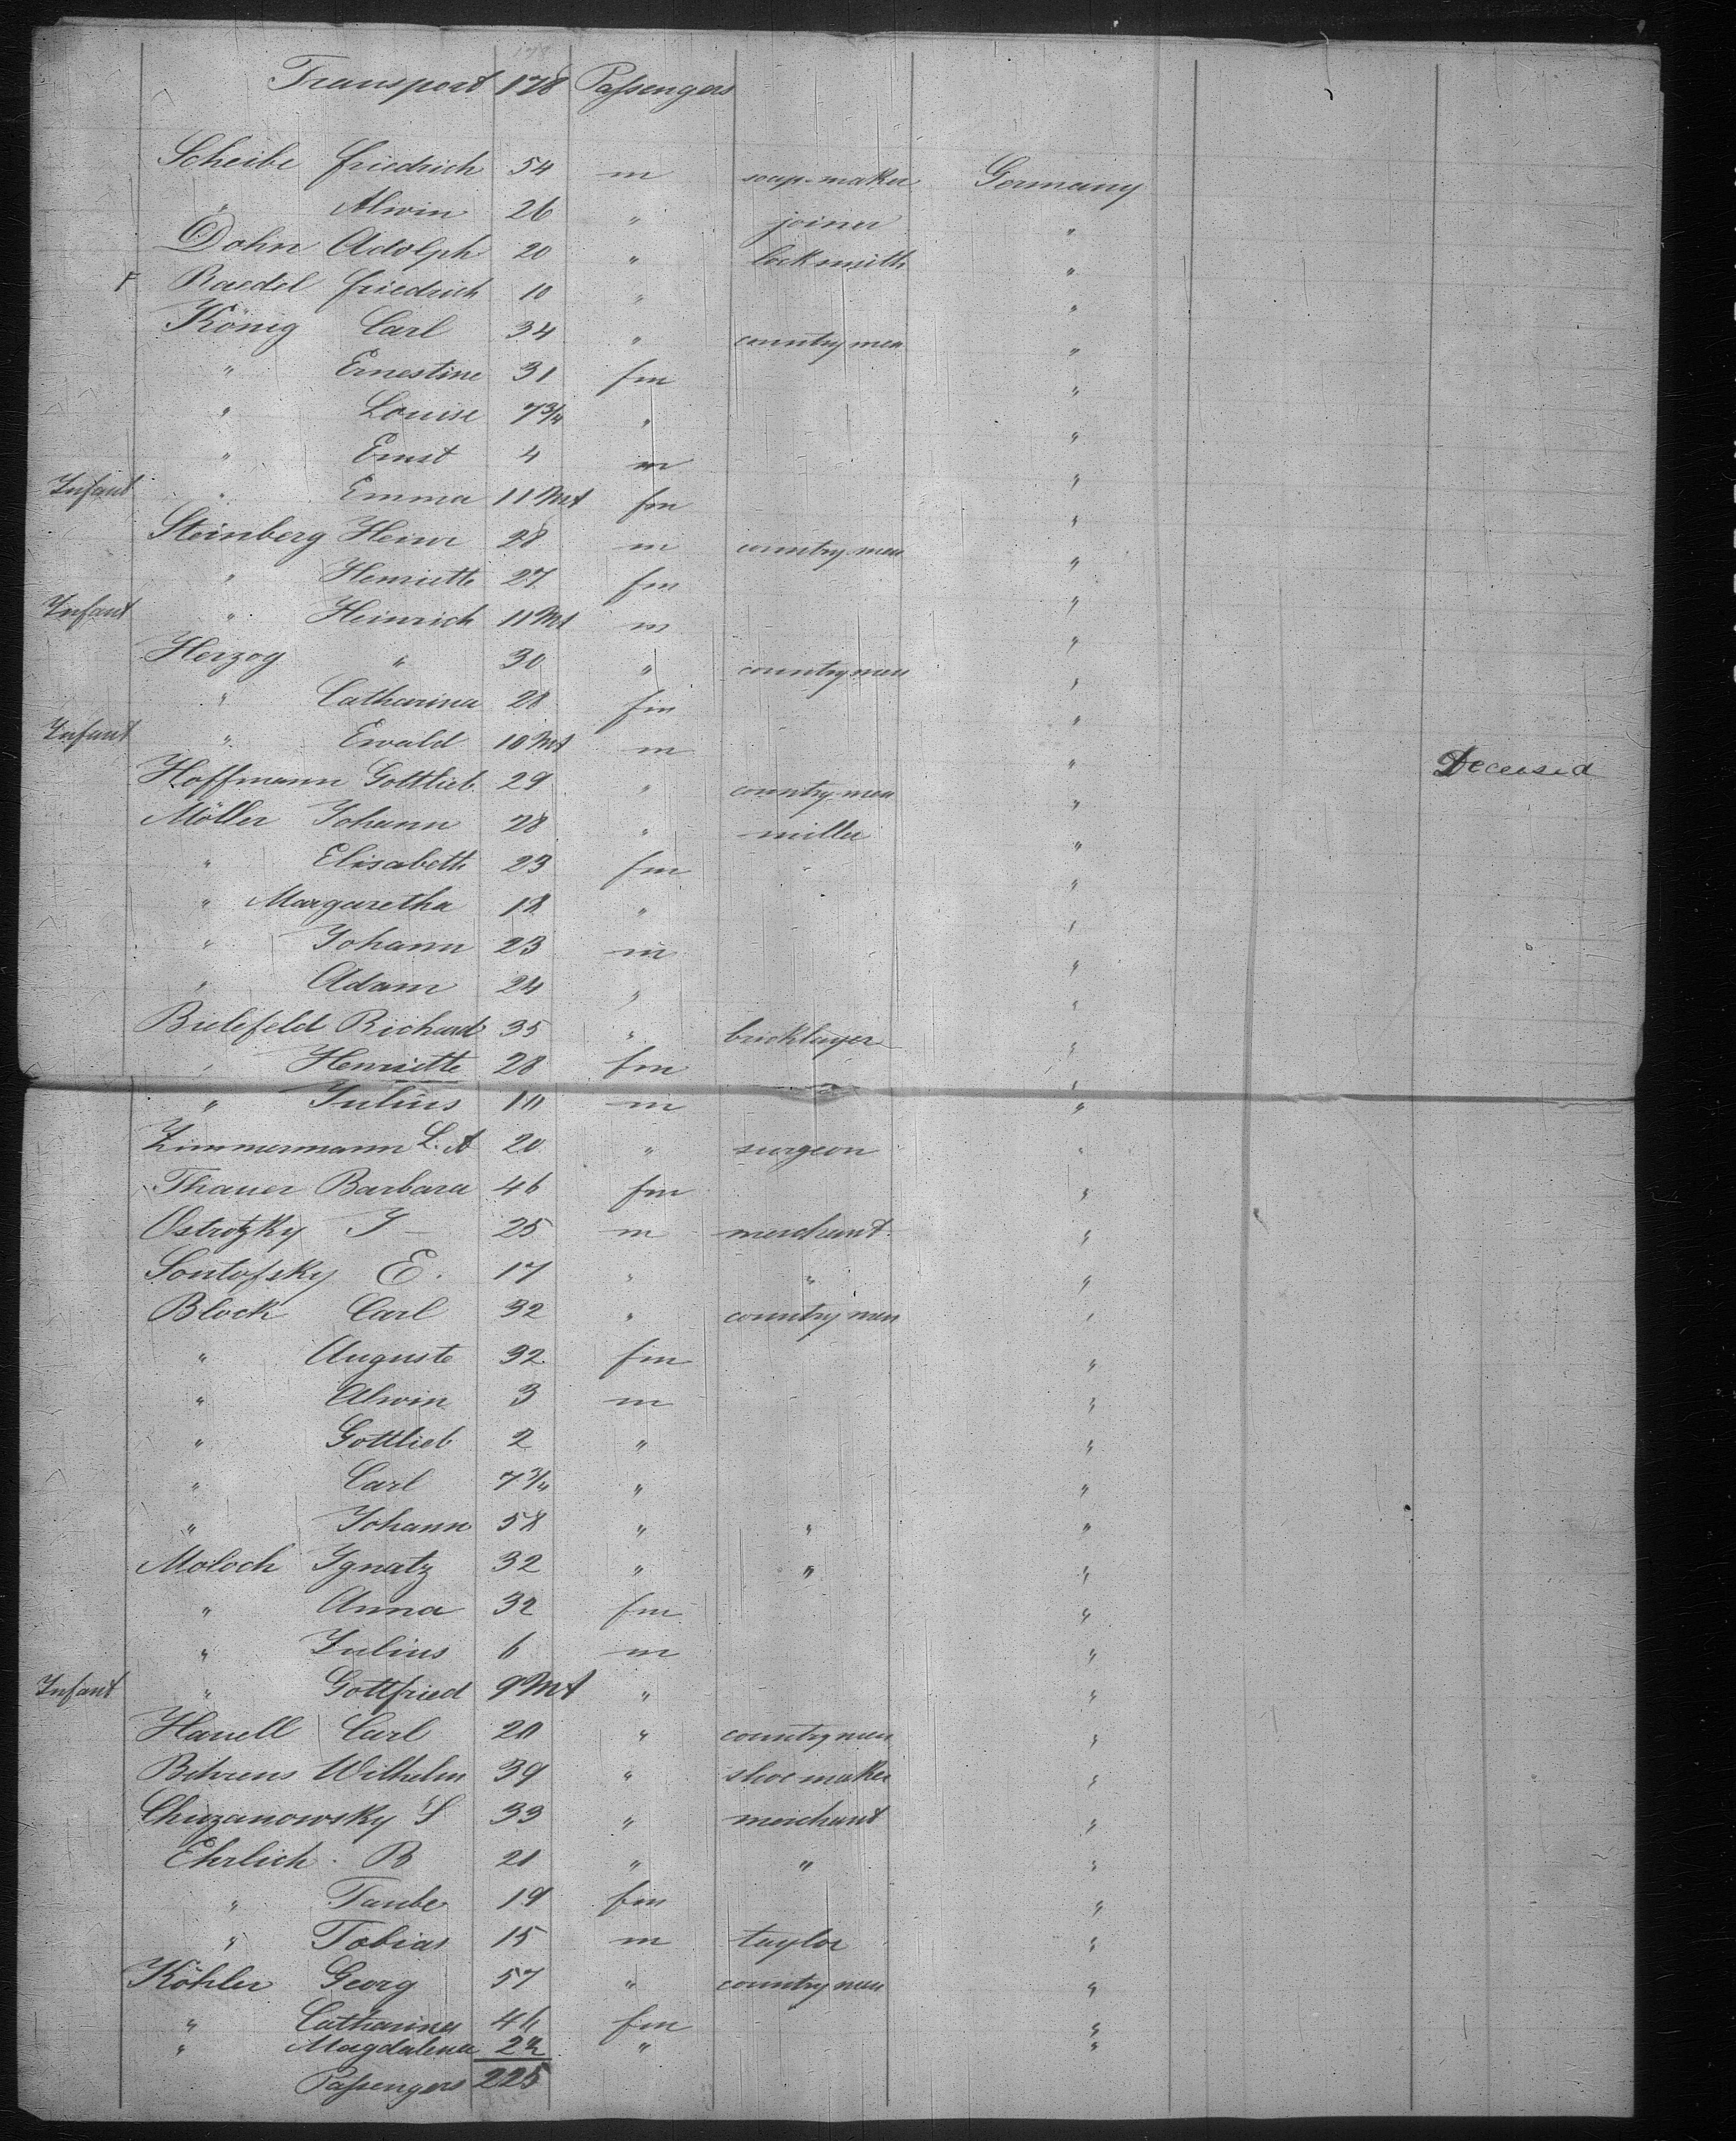 Transport 178 Passengers
Scheibe Friedrich 54 m soap-maker Germany
" Alwin 26 " joiner "
Dohn Adolph 20 " locksmith "
F Raedel Friedrich 10 " "
König Carl 34 " countrymen "
" Ernestine 31 fm "
" Louise 7 3/4 " "
" Ernst 4 m "
Infant " Emma 11 Mt fm "
Steinberg Heinr 28 m countrymen "
" Henriette 27 fm "
Infant " Heinrich 11 Mt m "
Herzog " 30 " countrymen "
" Catharina 28 fm "
Infant " Ewald 10 Mt m " Deceased
Hoffmann Gottlieb 29 " countrymen "
Möller Johann 28 " miller "
" Elisabeth 23 fm "
" Margaretha 18 " "
" Johann 23 m "
" Adam 24 " "
Bielefeld Richard 35 " bricklayer "
" Henriette 28 fm "
" Julius 10 m "
Zimmermann L. A 20 " surgeon "
Thauer Barbara 46 fm "
Ostrotzky J 25 m merchant "
Sontofsky E. 17 " " "
Block Carl 32 " countrymen "
" Auguste 32 fm "
" Alwin 3 m "
" Gottlieb 2 " "
" Carl 7 3/4 " "
" Johann 58 " " "
Moloch Ignatz 32 " " "
" Anna 32 fm "
" Julius 6 m "
Infant " Gottfried 9 Mt " "
Hanell Carl 20 " countrymen "
Behrens Wilhelm 39 " shoemaker "
Chuzanowsky S 33 " merchant "
Ehrlich B 21 " " "
" Taube 19 fm "
" Tobias 15 m taylor "
Köhler Georg 57 " countrymen "
" Catharina 46 fm "
" Magdalena " "
Passengers 225